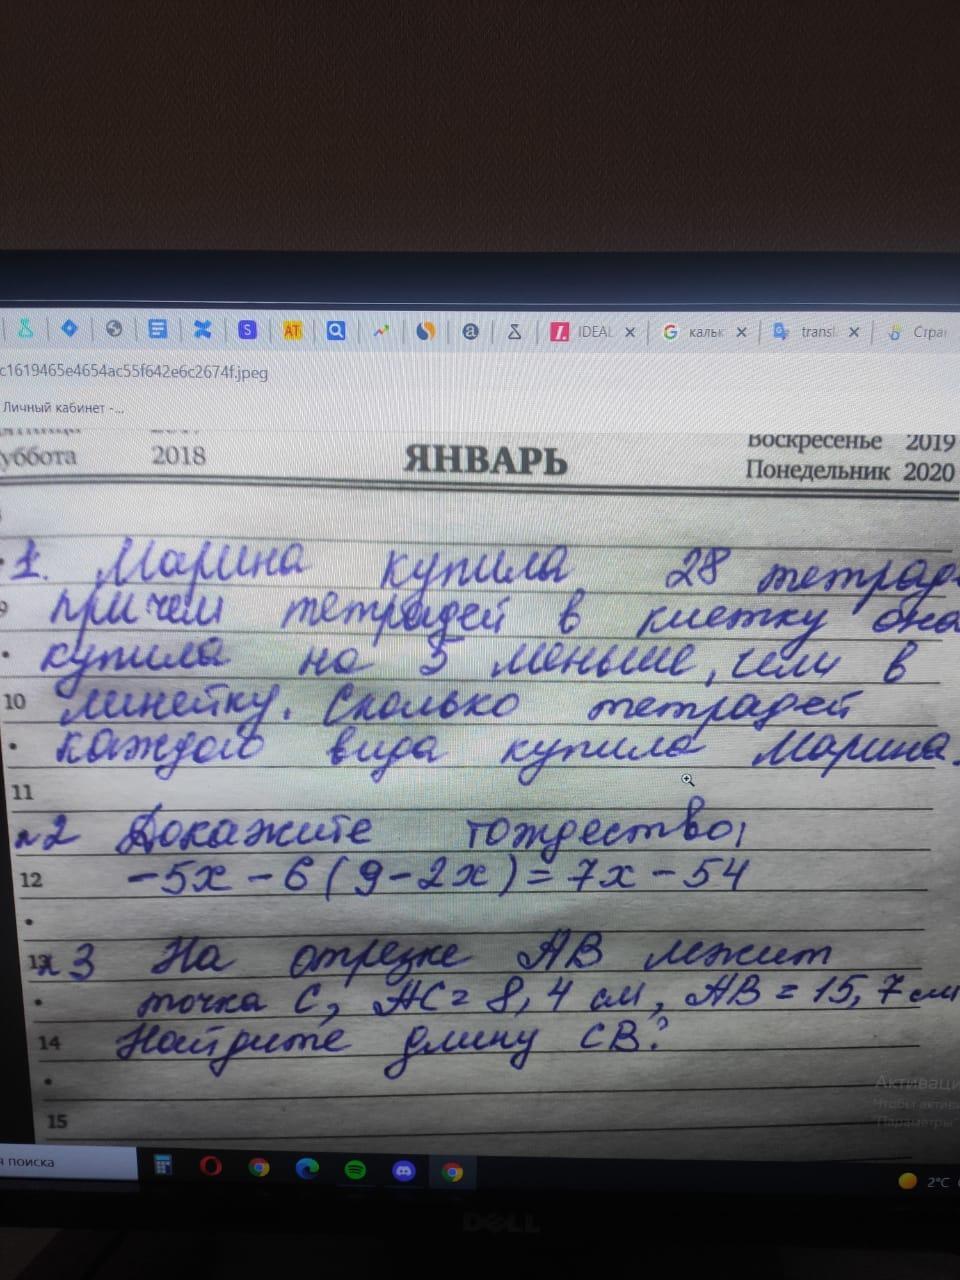 IDEAL
кальк
transl
Стран
c1619465e4654ac55f642e6c2674f.jpeg
Личный кабинет -...
уббота 2018 ЯНВАРЬ Воскресенье 2019
Понедельник 2020
1. Марина купила 28 тетрад
9 причем тетрадей в клетку она
купила на 5 меньше, чем в
10 линейку. Сколько тетрадей
каждого вида купила Марина.
11
№2 Докажите тождество,
12 -5x - 6(9-2x) = 7x - 54
13 №3 На отрезке АВ лежит
точка С, АС = 8,4 см, АВ = 15,7 см
14 Найдите длину СВ?
15
Активаци
Чтобы актив
Параметры
я поиска
2°C
DELL